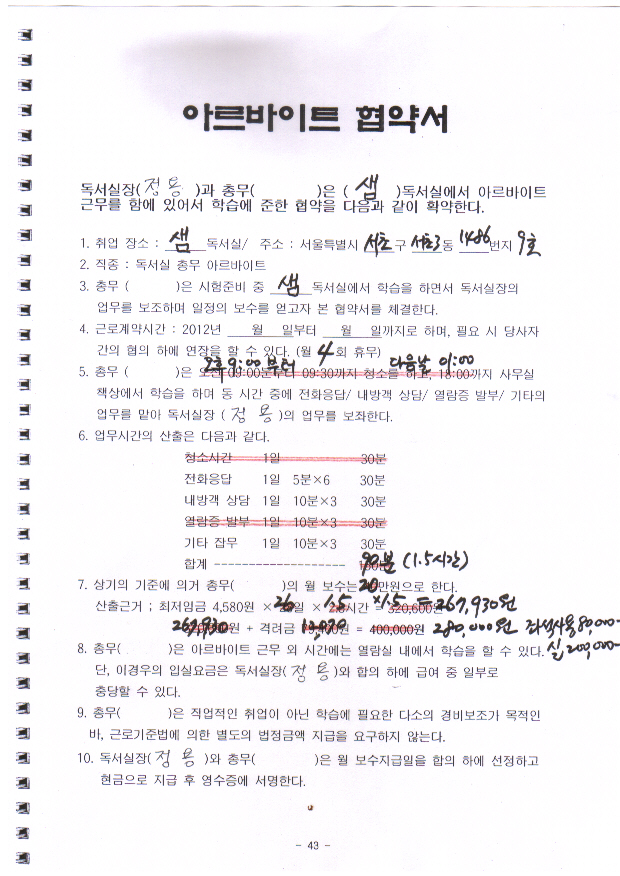 아르바이트 협약서
독서실장( 정 용 )과 총무( )은 ( 샘 )독서실에서 아르바이트
근무를 함에 있어서 학습에 준한 협약을 다음과 같이 확약한다.
1. 취업 장소 : 샘 독서실/ 주소 : 서울특별시 서초구 서초3동 1486번지 9호
2. 직종 : 독서실 총무 아르바이트
3. 총무 ( )은 시험준비 중 샘 독서실에서 학습을 하면서 독서실장의
업무를 보조하며 일정의 보수를 얻고자 본 협약서를 체결한다.
4. 근로계약시간 : 2012년 월 일부터 월 일까지로 하며, 필요 시 당사자
간의 협의 하에 연장을 할 수 있다. (월 4회 휴무)
오후 9:00 부터 다음날 01:00
5. 총무 ( )은 오전 09:00분부터 09:30까지 청소를 하고, 18:00까지 사무실
책상에서 학습을 하며 동 시간 중에 전화응답/ 내방객 상담/ 열람증 발부/ 기타의
업무를 맡아 독서실장 ( 정 용 )의 업무를 보좌한다.
6. 업무시간의 산출은 다음과 같다.
청소시간 1일 30분
전화응답 1일 5분×6 30분
내방객 상담 1일 10분×3 30분
열람증 발부 1일 10분×3 30분
기타 잡무 1일 10분×3 30분
90분 (1.5시간)
합계 -------------------- 분
7. 상기의 기준에 의거 총무( )의 월 보수는 20만원으로 한다.
산출근거 ; 최저임금 4,580원 × 26일 × 1.5시간 = 320,600원 ×1.5 = 267,930원
267,930원 + 격려금 12,070원 = 400,000원 280,000원 좌석사용80,000-
실200,000-
8. 총무( )은 아르바이트 근무 외 시간에는 열람실 내에서 학습을 할 수 있다.
단, 이경우의 입실요금은 독서실장( 정 용 )와 합의 하에 급여 중 일부로
충당할 수 있다.
9. 총무( )은 직업적인 취업이 아닌 학습에 필요한 다소의 경비보조가 목적인
바, 근로기준법에 의한 별도의 법정금액 지급을 요구하지 않는다.
10. 독서실장( 정 용 )와 총무( )은 월 보수지급일을 합의 하에 선정하고
현금으로 지급 후 영수증에 서명한다.
- 43 -